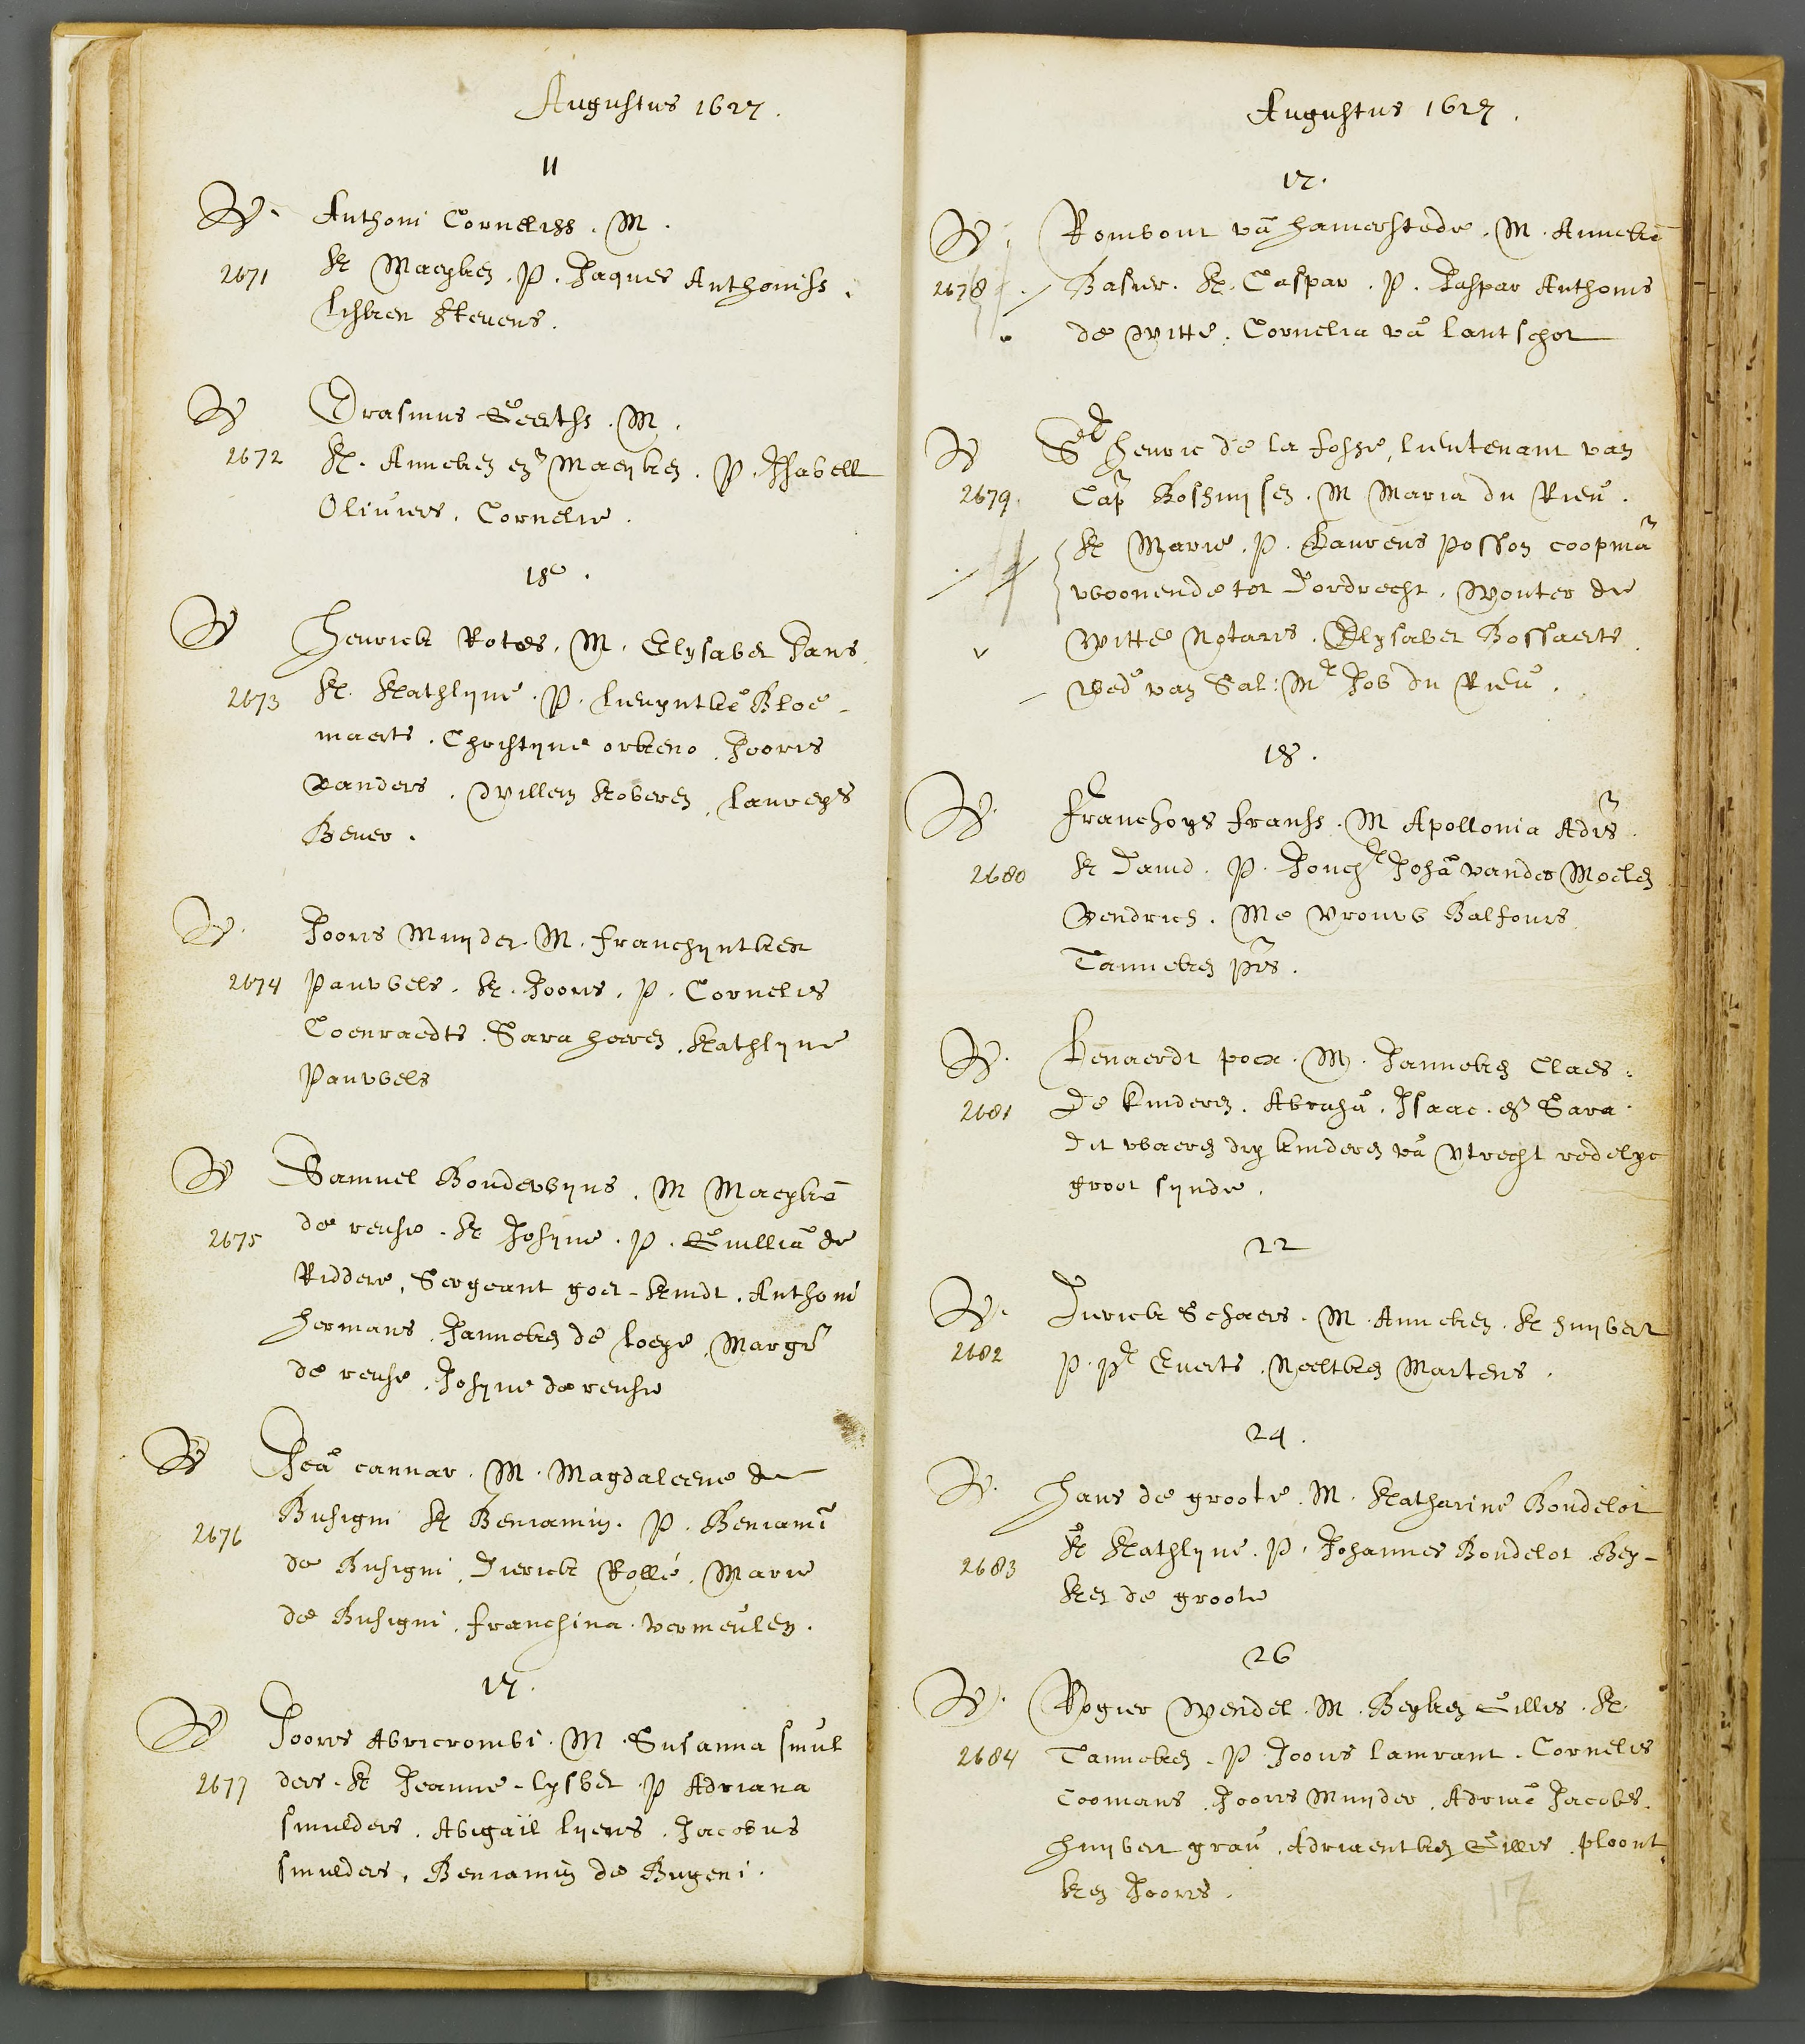 Augustus 1627.
11
V. Anthoni CornelisS. M.
2671 K Maeyken. P. Jaques Anthonisſ.
Lisbien Stevens.
V Erasmus Geertſs. M.
2672 K. Anneken en Maeyken. P. Isabell
Oliuiers. Cornelie.
18.
V Henrick Rotes. M. Elysabet Jans
2673 K. Kathlyne. P. Lieuyntkē Bloe-
maerts. Christyne orkens. Jooris
Sanders. Willem Koberen, laureys
Bever.
V. Jooris Muyder. M. franchyntken
2674 Pauwels. K. Jooris. P. Cornelis
Coenraedts. Sara heeren. Kathlyne
Pauwels
V Samuel Boudewyns. M Maeykē
2675 de reuse. K Josyne. P. Guilliā de
Riddere, Sergeant goet-kindt. Anthoni
Hermans. Janneken de loeye. Margr
de reuse. Josyne de reuse
V Jeā cannar. M. Magdaleene de
2676 Busigni K Beniamin. P. Beniamī
de Busigni. Dierick Rollé. Marie
de Busigni. franchina vermeulen.
17.
V Jooris Abricrombi. M. Susanna smul
2677 ders. K Jeanne-lysbet. P Adriana
smulders. Abigaïl lyens. Jacobus
smulders. Beniamin de Bugeni.
Augustus 1627.
17.
V. Rombout vā hamerstede. M. Annekē
2678 Basier. K. Caspar. P. Jaspar Anthonis
de witte. Cornelia vā lantschot
V Sr Henric de la fosse, lieutenant van
2679. Cap Boshuysen. M Maria du Rieu.
K Marie. P. Laurens Posson coopmā
woonende tot Dordrecht. Wouter de
Witte Notaris. Elysabet Bossaerts.
Wede van Sal: Mr Job du Rieu.
18.
V. Franchoys franss. M Apollonia Adrs.
2680 K Dauid. P. Jonchr Johā vander Moelen
Vendrich. Me vrouw Balfours.
Tanneken Prs.
V. Lenaerdt poex. M. Janneken Claes.
2681 De kinderen. Abrahā. Isaac. en Sara.
Dit waeren dry kinderen vā Vtrecht redelyc
groot synde.
22
V. Dierick Schaers. M. Anneken. K huybert
2682 P. Pr Euerts. Neeltken Martens.
24.
V. Hans de groote. M. Katharine Boudelot
2683 K Kathlyne. P. Johannes Boudelot. Bey-
ken de groote
26
V. Rogier Wendel. M. Beyken Gillis. K
2684 Tanneken. P. Jooris lamrant. Cornelis
Coomans. Jooris Muyder. Adriaē Jacobs.
Huybert grau. Adriaentken Gillis. ploont
ken Jooris.
17